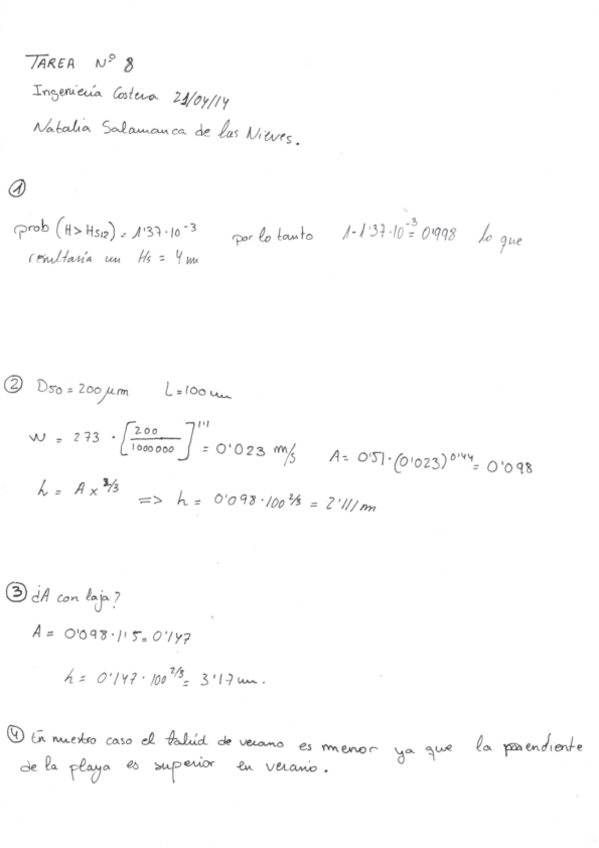 TAREA Nº 8
Ingeniería Costera 21/04/14
Natalia Salamanca de las Nieves.
①
prob (H > Hs12) = 1'37·10⁻³ por lo tanto 1-1'37·10⁻³ = 0'998 lo que
resultaría un Hs = 4 m
② D50 = 200 μm L = 100 m
W = 273 · [200/1000000]^1'1 = 0'023 m/s A = 0'51·(0'023)^0'44 = 0'098
h = A x^2/3 => h = 0'098·100^2/3 = 2'111 m
③ ¿A con laja?
A = 0'098·1'5 = 0'147
h = 0'147·100^2/3 = 3'17 m.
④ En nuestro caso el talúd de verano es menor ya que la pendiente
de la playa es superior en verano.